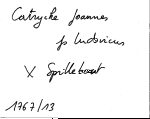 Catrycke Joannes
fs Ludovicus
X Spilleboeut
1767/13